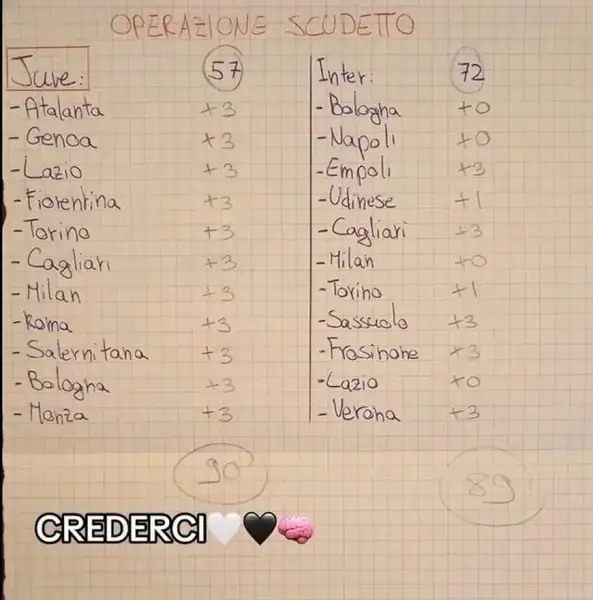 OPERAZIONE SCUDETTO
Juve: 57
- Atalanta +3
- Genoa +3
- Lazio +3
- Fiorentina +3
- Torino +3
- Cagliari +3
- Milan +3
- Roma +3
- Salernitana +3
- Bologna +3
- Monza +3
90
Inter: 72
- Bologna +0
- Napoli +0
- Empoli +3
- Udinese +1
- Cagliari +3
- Milan +0
- Torino +1
- Sassuolo +3
- Frosinone +3
- Lazio +0
- Verona +3
89
CREDERCI🤍🖤🧠